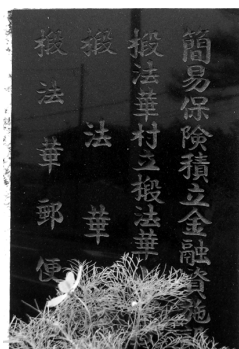 簡易保険積立金融資施設
椴法華村立椴法華
椴法華
椴法華郵便